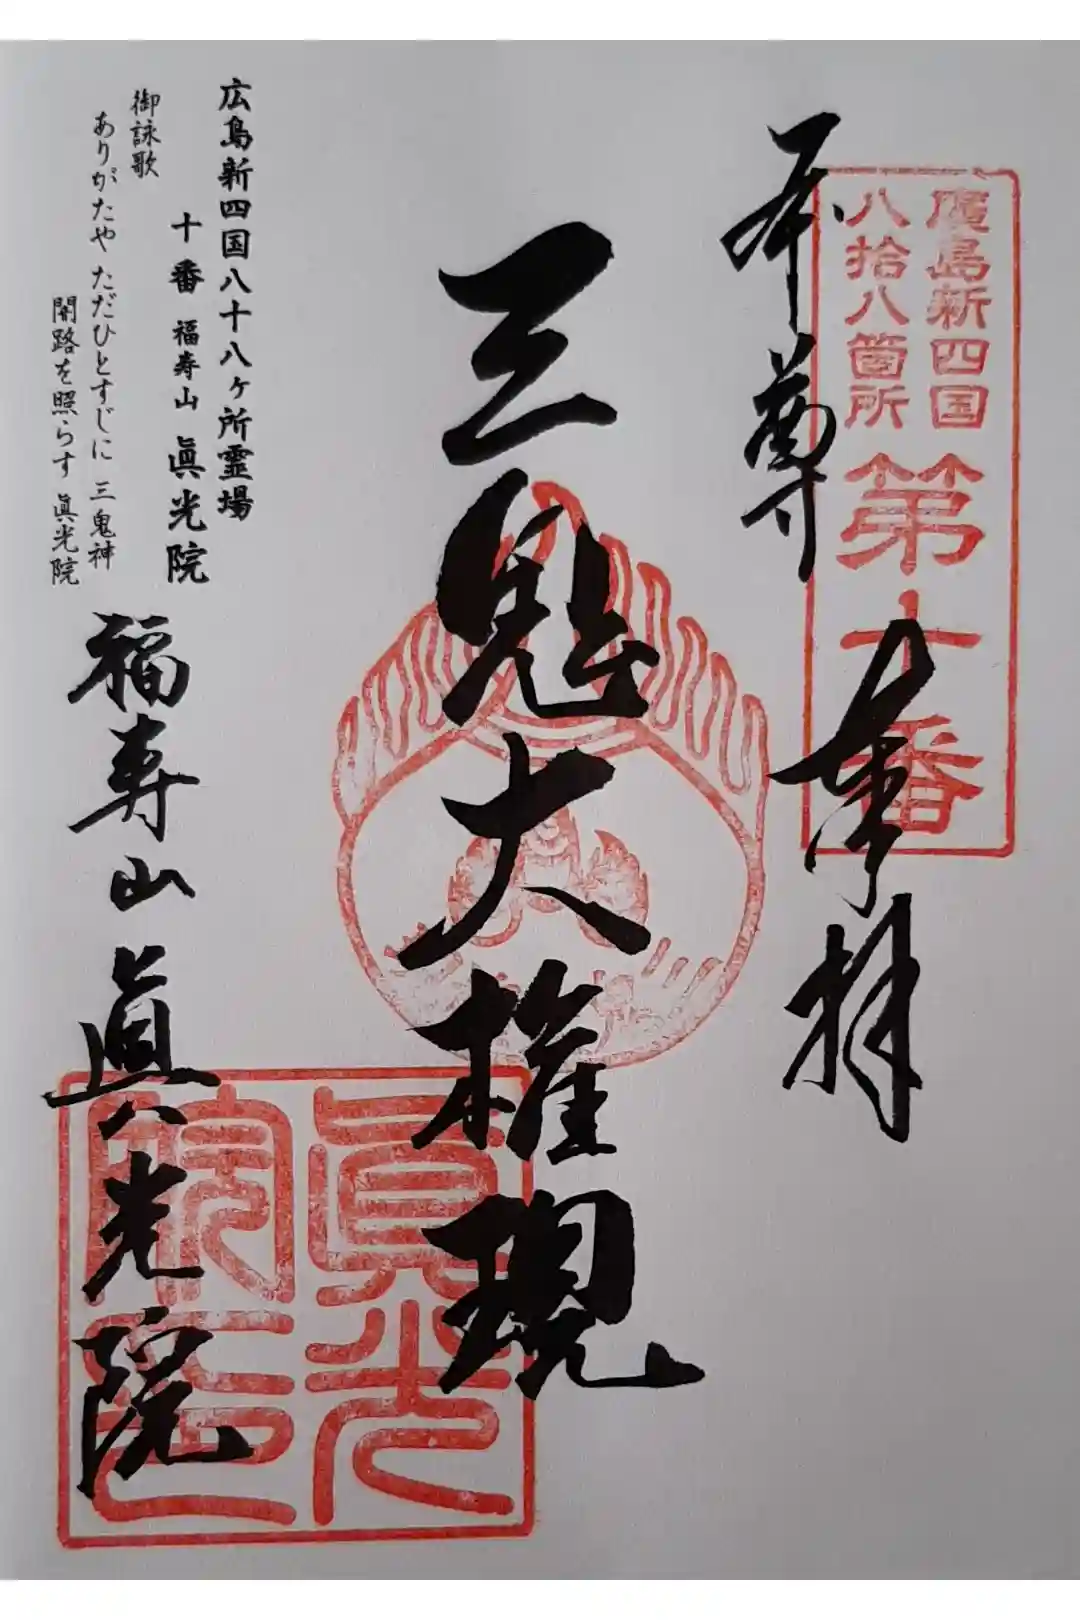 廣島新四国
八拾八箇所
第十番
本尊 奉拝
三鬼大権現
広島新四国八十八ヶ所霊場
十番 福寿山 眞光院
御詠歌
ありがたや ただひとすじに 三鬼神
闇路を照らす 眞光院
福寿山 眞光院
眞光
院印